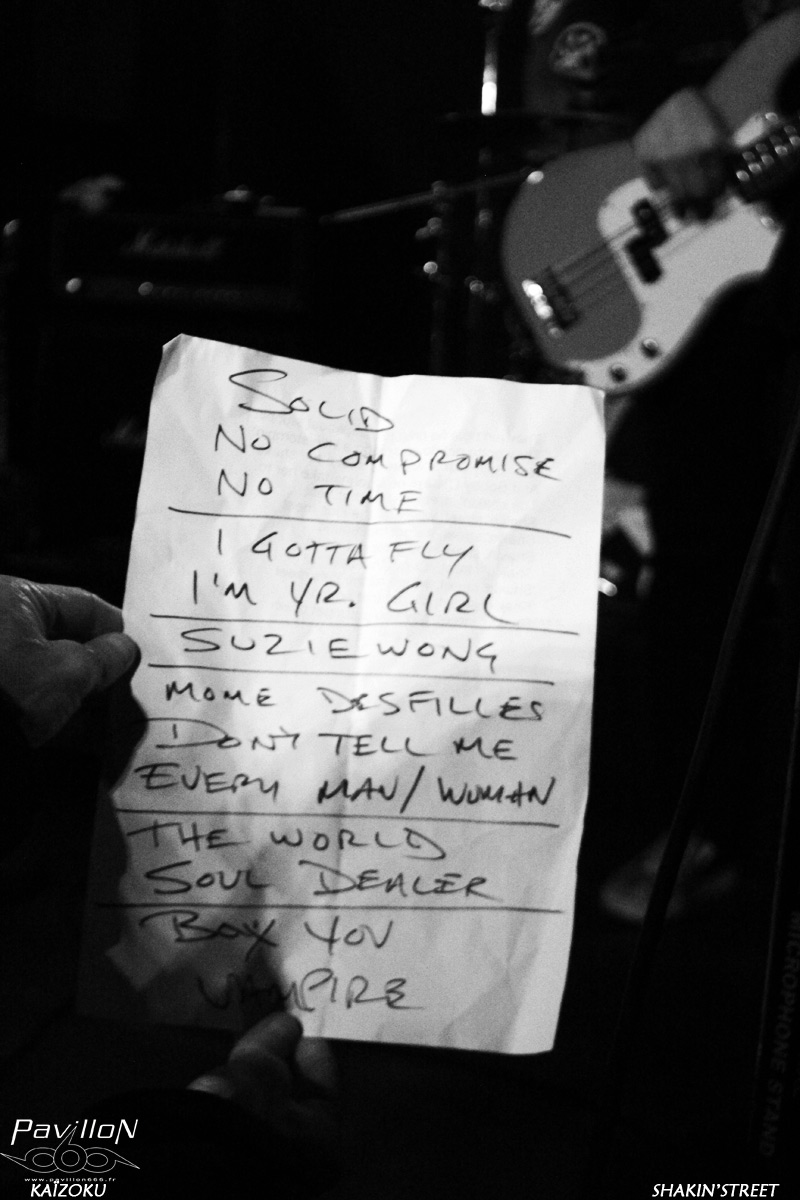 Marshall
SOLID
NO COMPROMISE
NO TIME
I GOTTA FLY
I'M YR. GIRL
SUZIE WONG
MOME DESFILLES
DON'T TELL ME
EVERY MAN/WOMAN
THE WORLD
SOUL DEALER
BOX YOU
VAMPIRE
MICROPHONE STAND
PAVILLON
666
www.pavillon666.fr
KAÏZOKU
SHAKIN'STREET